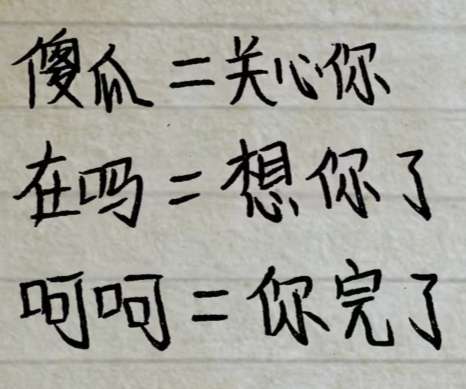 傻瓜=关心你
在吗=想你了
呵呵=你完了